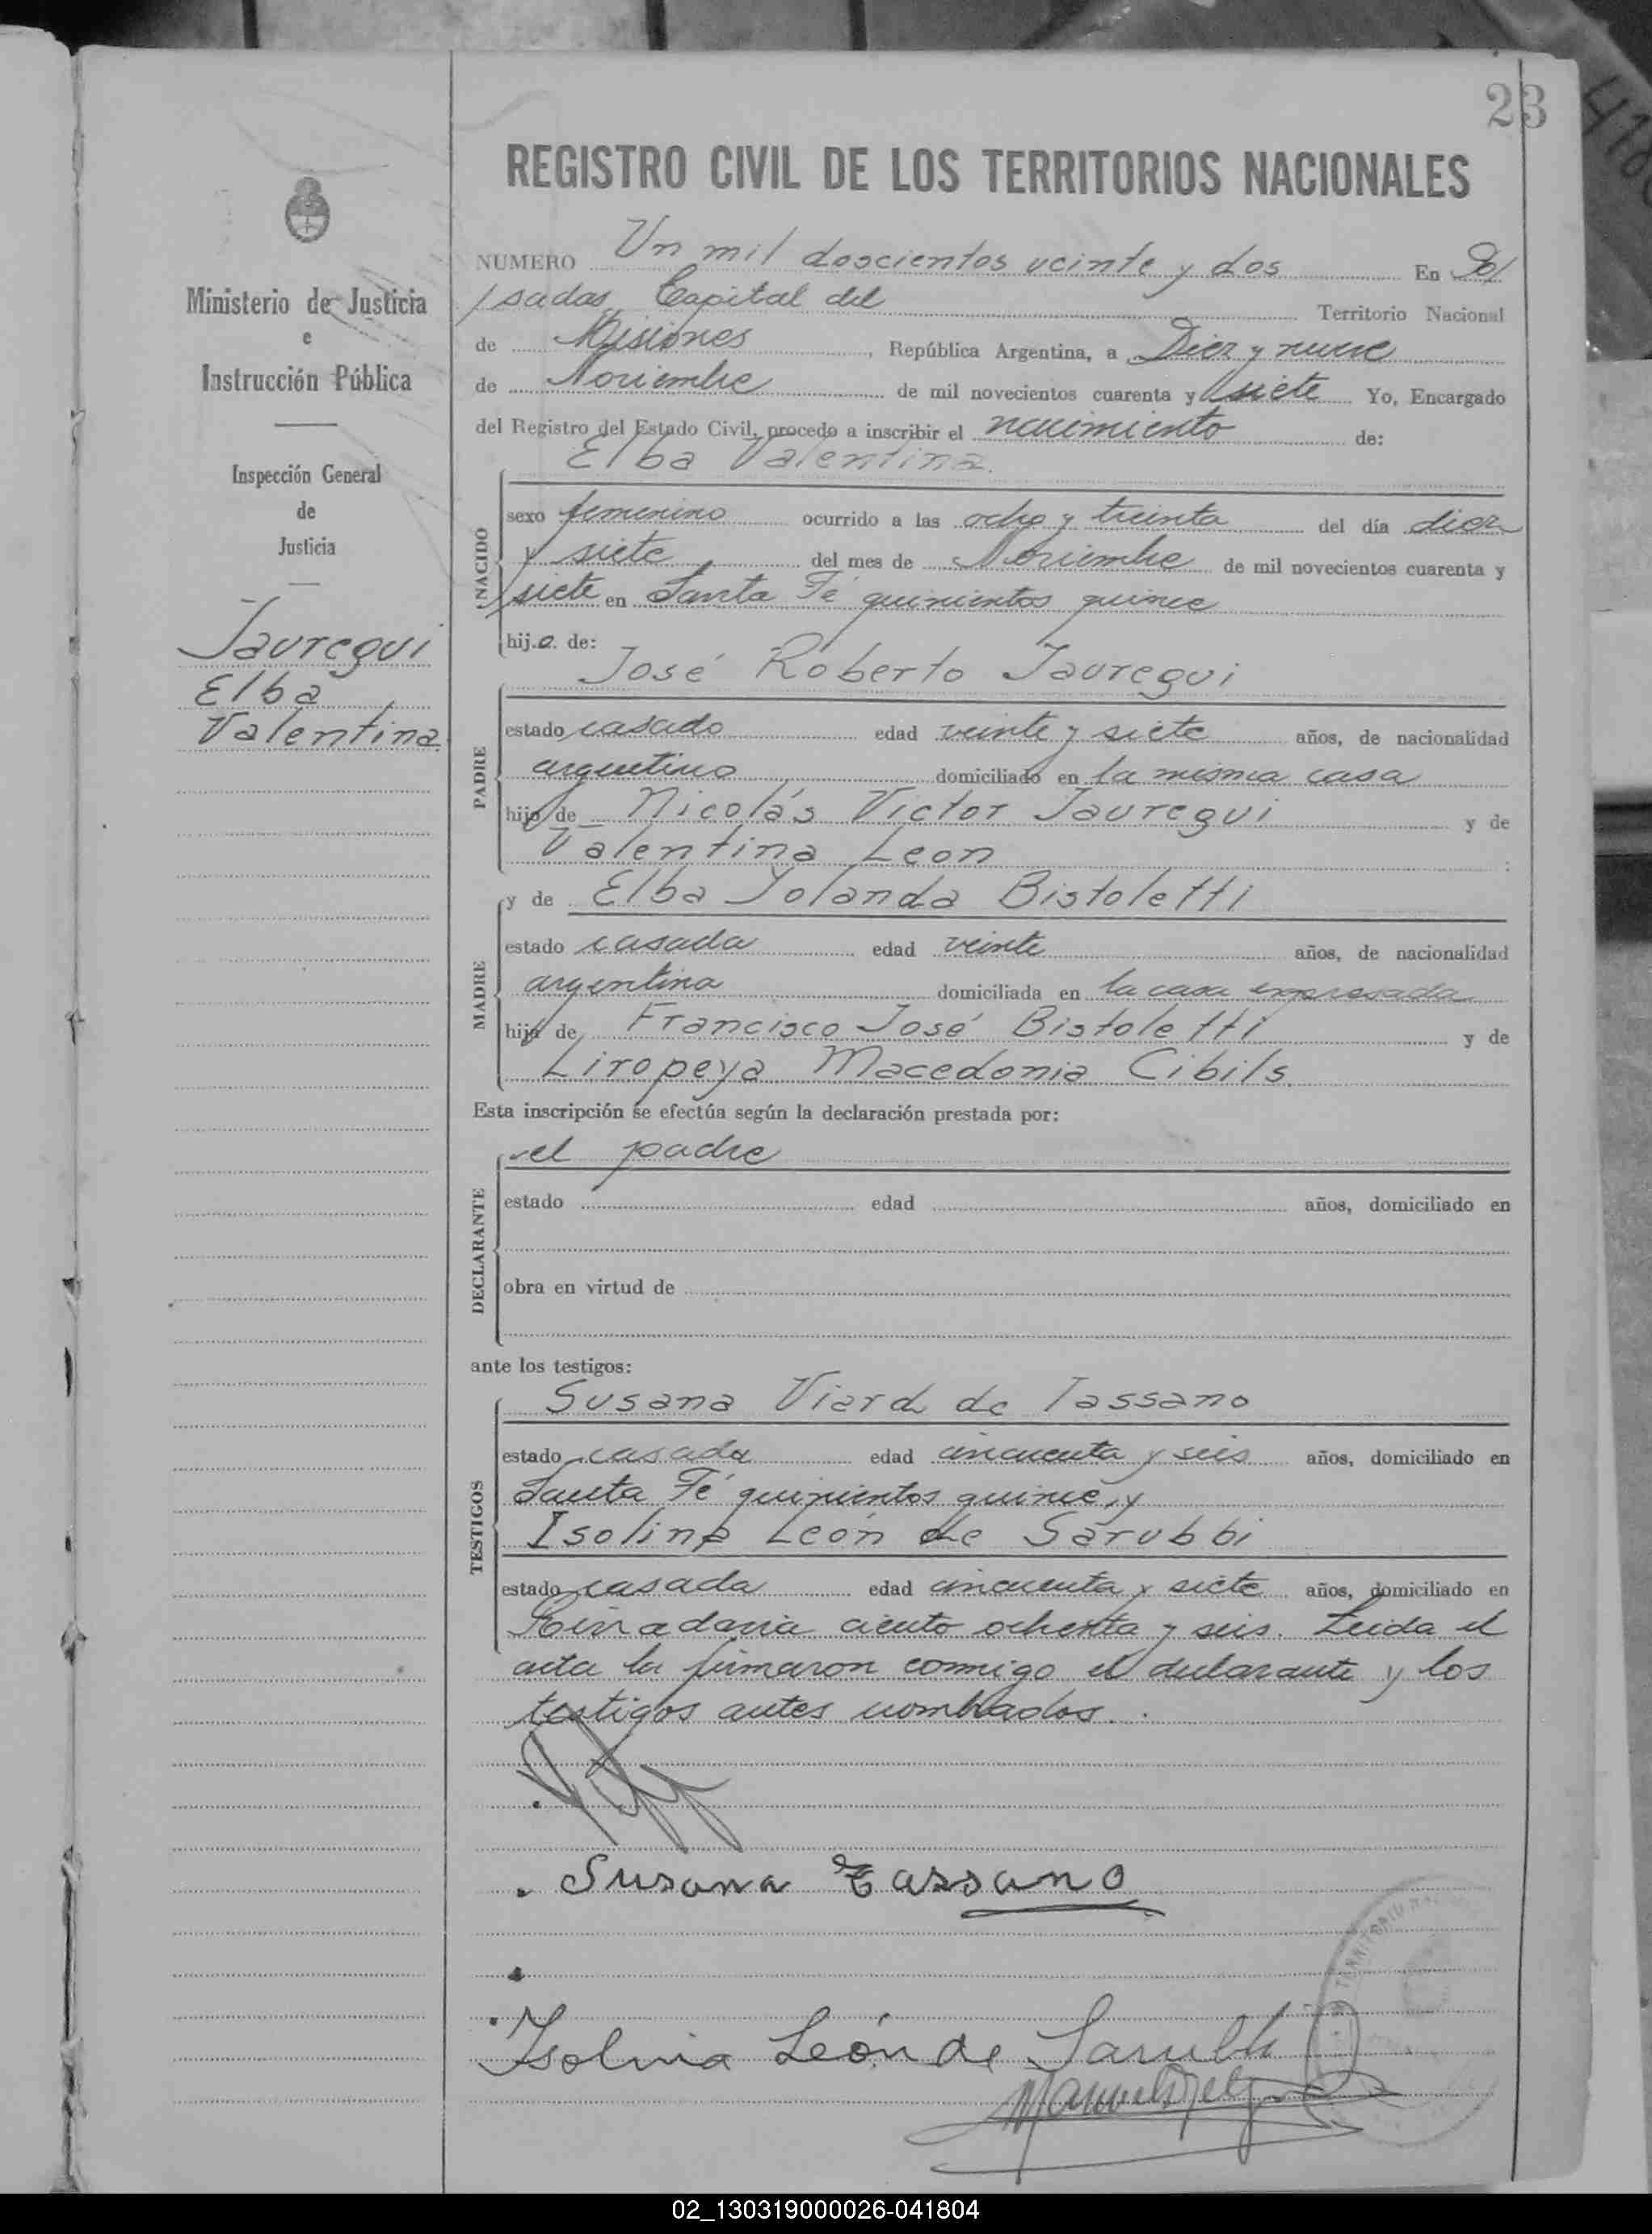 23
REGISTRO CIVIL DE LOS TERRITORIOS NACIONALES
Ministerio de Justicia
e
Instrucción Pública
Inspección General
de
Justicia
Jauregui
Elba
Valentina
NUMERO Un mil doscientos veinte y dos En Po/
/sadas, Capital del Territorio Nacional
de Misiones, República Argentina, a Diez y nueve
de Noviembre de mil novecientos cuarenta y siete Yo, Encargado
del Registro del Estado Civil, procedo a inscribir el nacimiento de:
Elba Valentina.
NACIDO
sexo femenino ocurrido a las ocho y treinta del día diez
y siete del mes de Noviembre de mil novecientos cuarenta y
siete en Santa Fé quinientos quince
hija. de:
José Roberto Jauregui
PADRE
estado casado edad veinte y siete años, de nacionalidad
argentino domiciliado en la misma casa
hijo de Nicolás Victor Jauregui y de
Valentina Leon
y de Elba Yolanda Bistoletti
MADRE
estado casada edad veinte años, de nacionalidad
argentina domiciliada en la casa expresada
hija de Francisco José Bistoletti y de
Liropeya Macedonia Cibils.
Esta inscripción se efectúa según la declaración prestada por:
el padre
DECLARANTE
estado edad años, domiciliado en
obra en virtud de
ante los testigos:
Susana Viard de Tassano
TESTIGOS
estado casada edad cincuenta y seis años, domiciliado en
Santa Fé quinientos quince, y
Isolina León de Sarubbi
estado casada edad cincuenta y siete años, domiciliado en
ciento ochenta y seis. Leida el
acta la firmaron conmigo el declarante y los
testigos antes nombrados.
Susana Tassano
Isolina León de Sarubbi
02_130319000026-041804